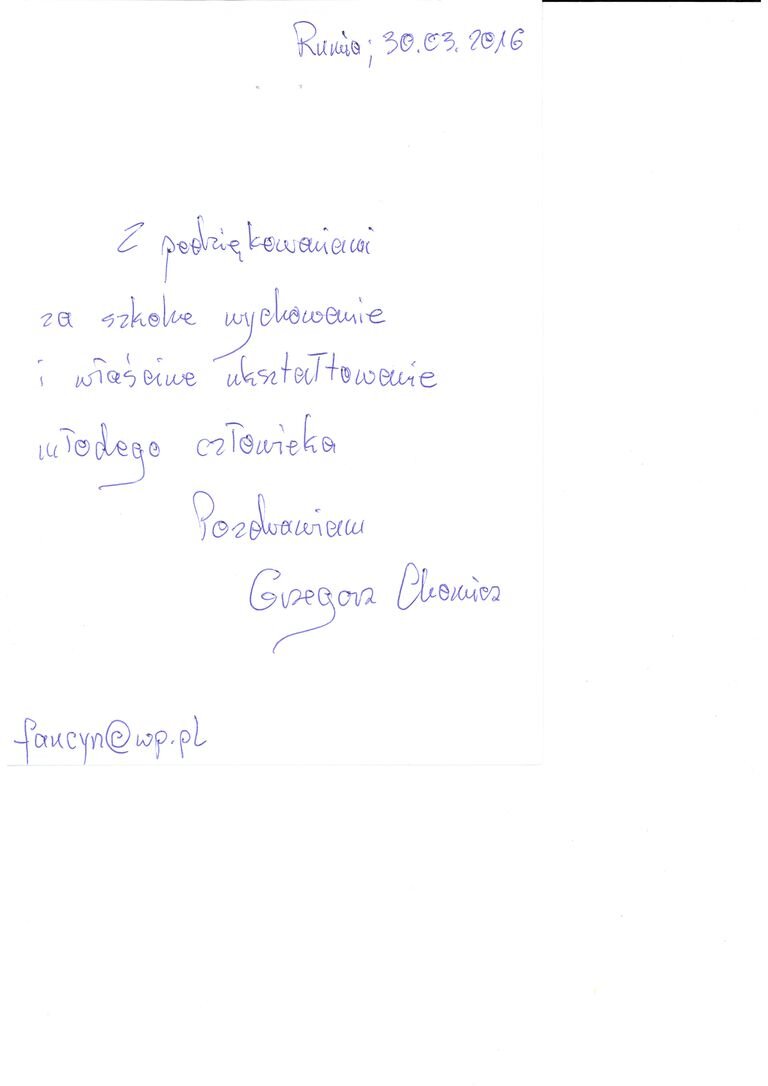 Rumia; 30.03.2016
Z podziękowaniami
za szkolne wychowanie
i właściwe ukształtowanie
młodego człowieka
Pozdrawiam
Grzegorz Chomicz
fancyn@wp.pl